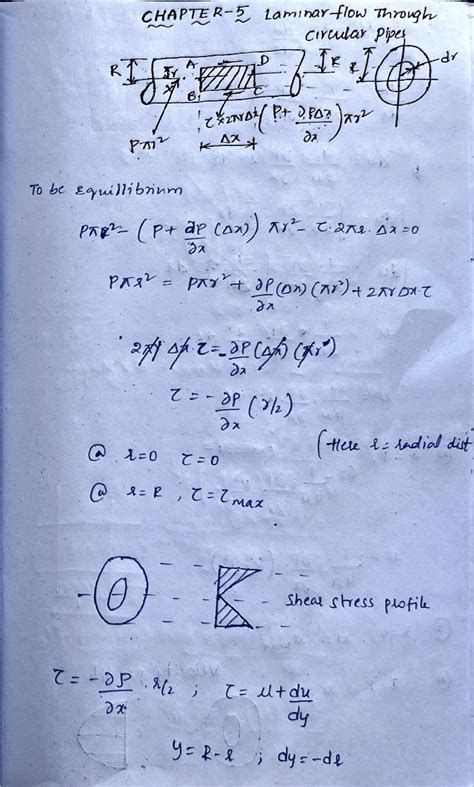 CHAPTER-5 Laminar flow Through
Circular Pipes
R r A B C D R R r dr
Pπr²
τ×2πrΔx (P+ ∂P/∂x Δx) πr²
Δx
To be equillibrium
Pπr² - (P+ ∂P/∂x (Δx)) πr² - τ.2πr.Δx=0
Pπr² = Pπr² + ∂P/∂x (Δx)(πr²) + 2πrΔx.τ
2πr Δx.τ = -∂P/∂x (Δx)(πr²)
τ = -∂P/∂x (r/2)
(Here r = radial dist
@ r=0 τ=0
@ r=R, τ=τmax
shear stress profile
τ = -∂P/∂x . r/2 ; τ = μ+ du/dy
y=R-r ; dy=-dr